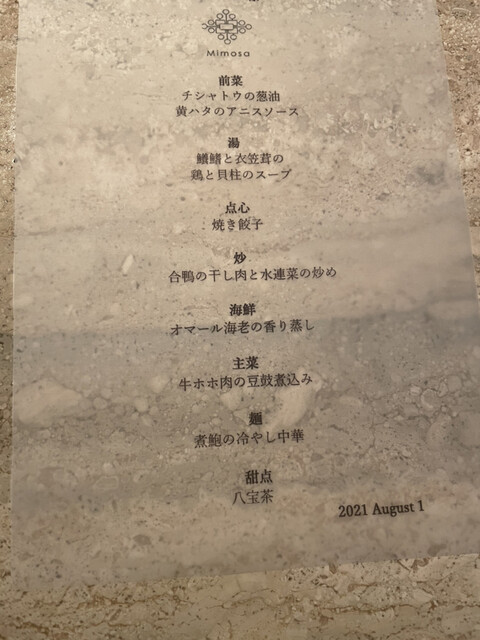 Mimosa
前菜
チシャトウの葱油
黄ハタのアニスソース
湯
鱶鰭と衣笠茸の
鶏と貝柱のスープ
点心
焼き餃子
炒
合鴨の干し肉と水連菜の炒め
海鮮
オマール海老の香り蒸し
主菜
牛ホホ肉の豆豉煮込み
麺
煮鮑の冷やし中華
甜点
八宝茶
2021 August 1